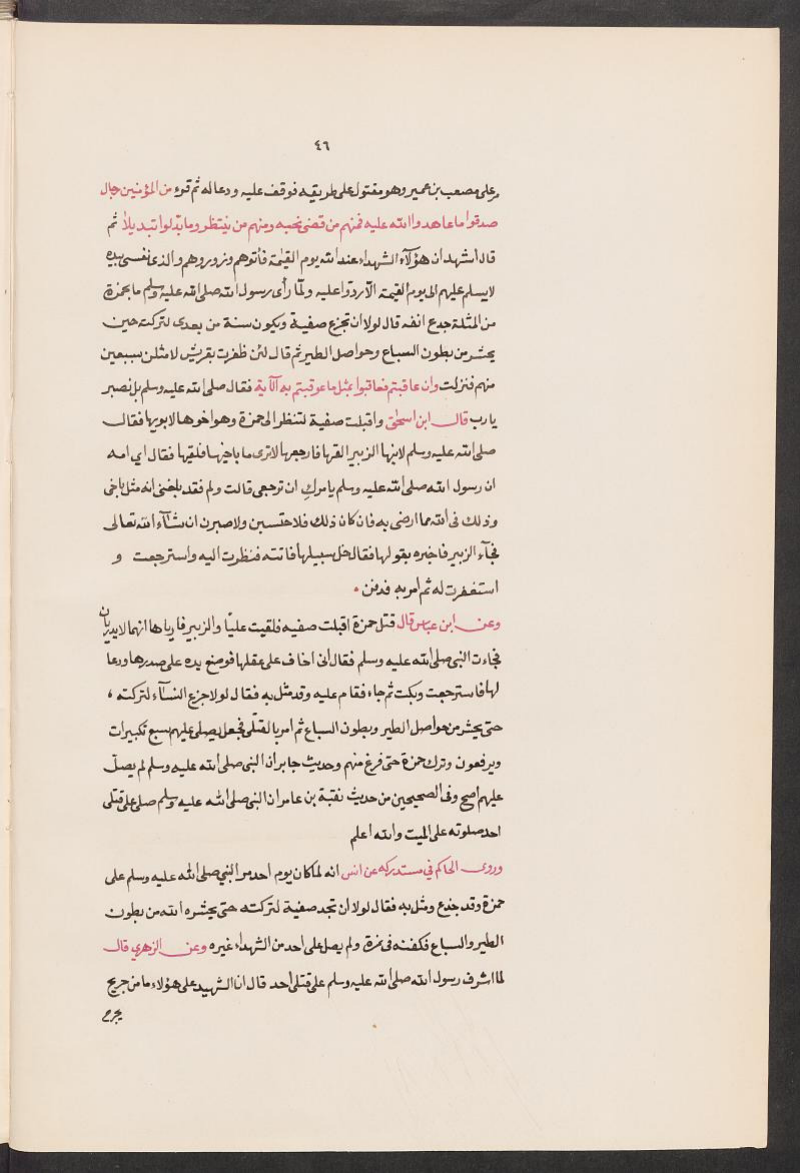 ٤٦
مر على مصعب بن عمير وهو مقتول على طريقه فوقف عليه ودعا له ثم قرء من المؤمنين رجال
صدقوا ما عاهدوا الله عليه فمنهم من قضى نحبه ومنهم من ينتظر وما بدّلوا تبديلا ثم
قال اشهد ان هؤلآء الشهداء عند الله يوم القيمة فأتوهم وزوروهم والذى نفسى بيده
لايسلم عليهم الى يوم القيمة الا ردوا عليه ولمّا رأى رسول الله صلى الله عليه وسلم ما بحمزة
من المثلة جدع انفه قال لولا ان تجزع صفية ويكون سنة من بعدى لتركته حين
يحشر من بطون السباع وحواصل الطير ثم قال لئن ظفرت بقريش لامثلن بسبعين
منهم فنزلت وان عاقبتم فعاقبوا بمثل ما عوقبتم به الآية فقال صلى الله عليه وسلم بل نصبر
يا رب قال ابن اسحاق واقبلت صفية لتنظر الى حمزة وهو اخوها لابويها فقال
صلى الله عليه وسلم لابنها الزبير القها فارجعها لاترى ما باخيها فلقيها فقال اي امه
ان رسول الله صلى الله عليه وسلم يامرك ان ترجعى قالت ولم فقد بلغنى انه مثل باخى
وذلك فى الله مما ارضى به فان كان ذلك فلاحتسبن ولاصبرن ان شآء الله تعالى
فجآء الزبير فاخبره بقولها فقال خل سبيلها فاتته فنظرت اليه واسترجعت و
استغفرت له ثم امر به فدفن
وعن ابن عباس قال قتل حمزة اقبلت صفيه فلقيت عليّا والزبير فارياها انهما لايدريان
فجاءت النبى صلى الله عليه وسلم فقال انى اخاف على عقلها فوضع يده على صدرها ودعا
لها فاسترجعت وبكت ثم جاء فقام عليه وقد مثل به فقال لولا جزع النسآء لتركته ،
حتى يحشر من حواصل الطير وبطون السباع ثم امر بالقتلى فجعل يصلى عليهم سبع تكبيرات
ويرفعون وترك حمزة حتى فرغ منهم وحديث جابر ان النبى صلى الله عليه وسلم لم يصلّ
عليهم اصح وفى الصحيحين من حديث نقبة بن عامر ان النبى صلى الله عليه وسلم صلى على قتلى
احد صلوته على الميت والله اعلم
وروى الحاكم في مستدركه عن انس انه لما كان يوم احد مر النبي صلى الله عليه وسلم على
حمزة وقد جدع ومثل به فقال لولا ان تجد صفية لتركته حتى يحشره الله من بطون
الطير والسباع فكفنه فى نمرة ولم يصل على احد من الشهداء غيره وعن الزهري قال
لما اشرف رسول الله صلى الله عليه وسلم على قتلى احد قال ان الشهيد على هؤلاء ما من جريح
يجرح